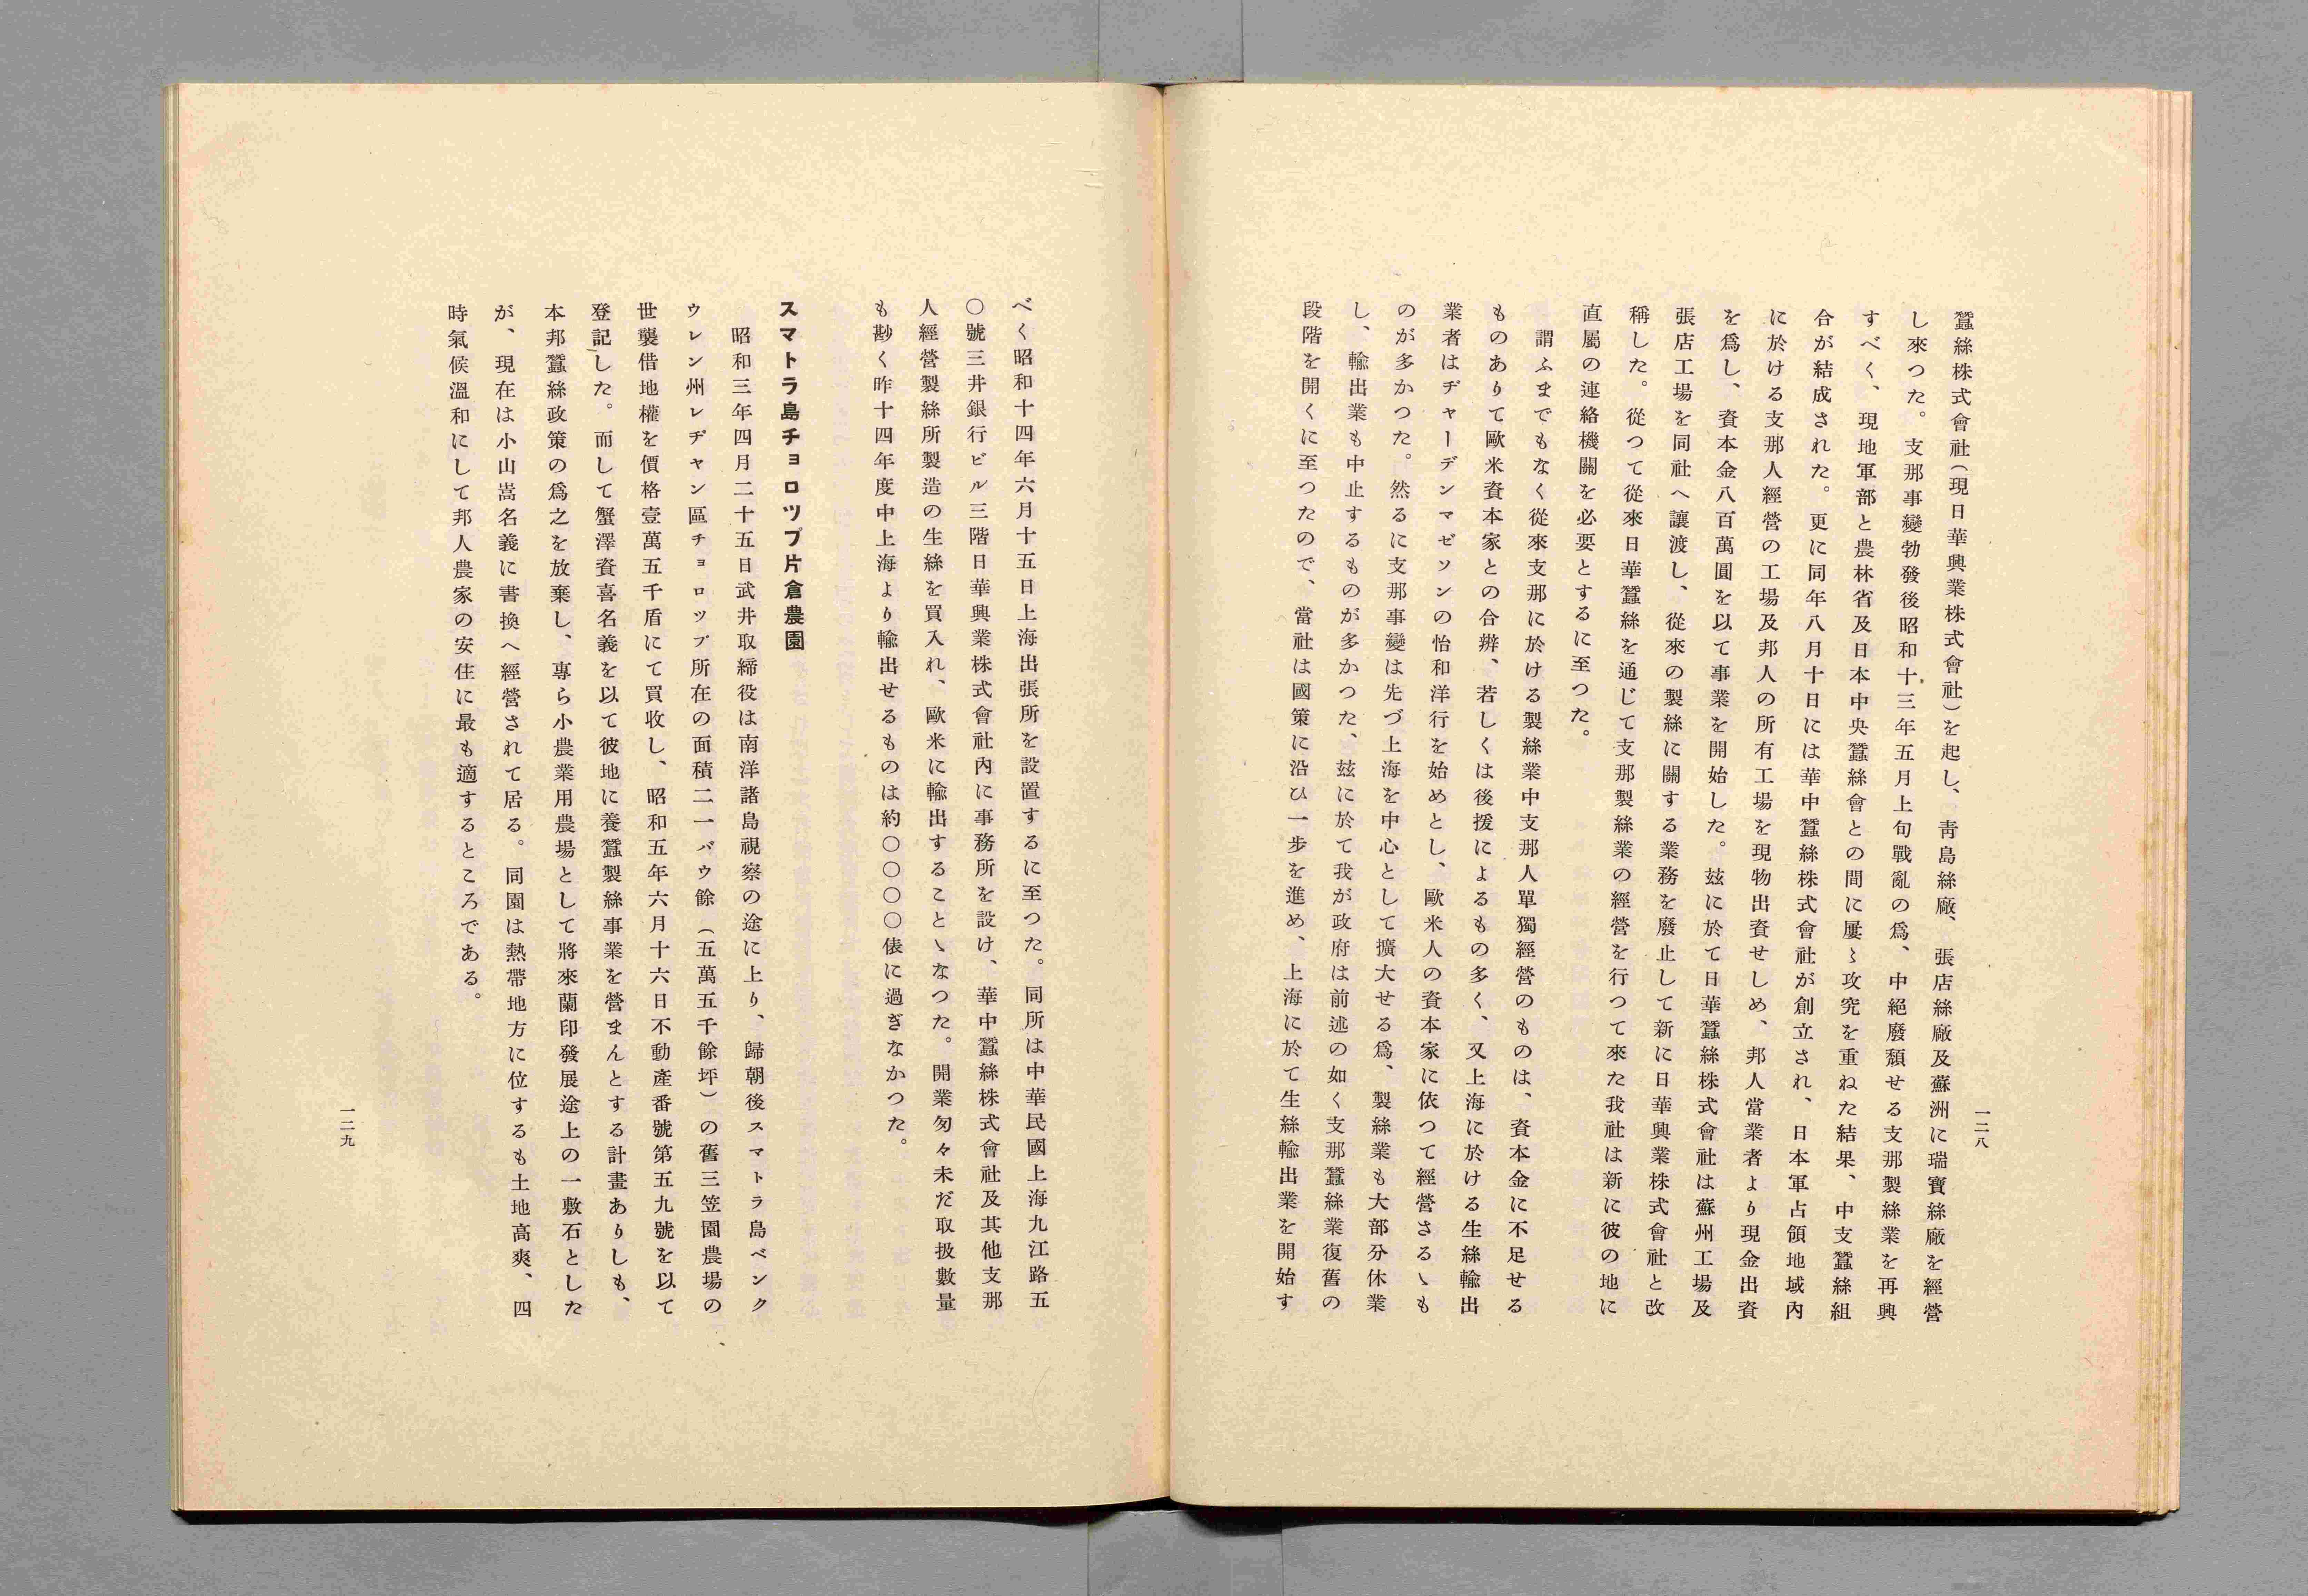 蠶絲株式會社(現日華興業株式會社)を起し、靑島絲廠、張店絲廠及蘇洲に瑞寶絲廠を經營
し來つた。支那事變勃發後昭和十三年五月上旬戰亂の爲、中絕廢頽せる支那製絲業を再興
すべく、現地軍部と農林省及日本中央蠶絲會との間に屢〻攻究を重ねた結果、中支蠶絲組
合が結成された。更に同年八月十日には華中蠶絲株式會社が創立され、日本軍占領地域內
に於ける支那人經營の工場及邦人の所有工場を現物出資せしめ、邦人當業者より現金出資
を爲し、資本金八百萬圓を以て事業を開始した。玆に於て日華蠶絲株式會社は蘇州工場及
張店工場を同社へ讓渡し、從來の製絲に關する業務を廢止して新に日華興業株式會社と改
稱した。從つて從來日華蠶絲を通じて支那製絲業の經營を行つて來た我社は新に彼の地に
直屬の連絡機關を必要とするに至つた。
謂ふまでもなく從來支那に於ける製絲業中支那人單獨經營のものは、資本金に不足せる
ものありて歐米資本家との合辦、若しくは後援によるもの多く、又上海に於ける生絲輸出
業者はヂャーデンマゼソンの怡和洋行を始めとし、歐米人の資本家に依つて經營さるゝも
のが多かつた。然るに支那事變は先づ上海を中心として擴大せる爲、製絲業も大部分休業
し、輸出業も中止するものが多かつた、玆に於て我が政府は前述の如く支那蠶絲業復舊の
段階を開くに至つたので、當社は國策に沿ひ一步を進め、上海に於て生絲輸出業を開始す
一二八
べく昭和十四年六月十五日上海出張所を設置するに至つた。同所は中華民國上海九江路五
〇號三井銀行ビル三階日華興業株式會社內に事務所を設け、華中蠶絲株式會社及其他支那
人經營製絲所製造の生絲を買入れ、歐米に輸出することゝなつた。開業匆々未だ取扱數量
も尠く昨十四年度中上海より輸出せるものは約〇〇〇〇俵に過ぎなかつた。
スマトラ島チョロツプ片倉農園
昭和三年四月二十五日武井取締役は南洋諸島視察の途に上り、歸朝後スマトラ島ベンク
ウレン州レヂャン區チョロツプ所在の面積二一バウ餘(五萬五千餘坪)の舊三笠園農場の
世襲借地權を價格壹萬五千盾にて買收し、昭和五年六月十六日不動產番號第五九號を以て
登記した。而して蟹澤資喜名義を以て彼地に養蠶製絲事業を營まんとする計畫ありしも、
本邦蠶絲政策の爲之を放棄し、專ら小農業用農場として將來蘭印發展途上の一敷石とした
が、現在は小山嵩名義に書換へ經營されて居る。同園は熱帶地方に位するも土地高爽、四
時氣候溫和にして邦人農家の安住に最も適するところである。
一二九